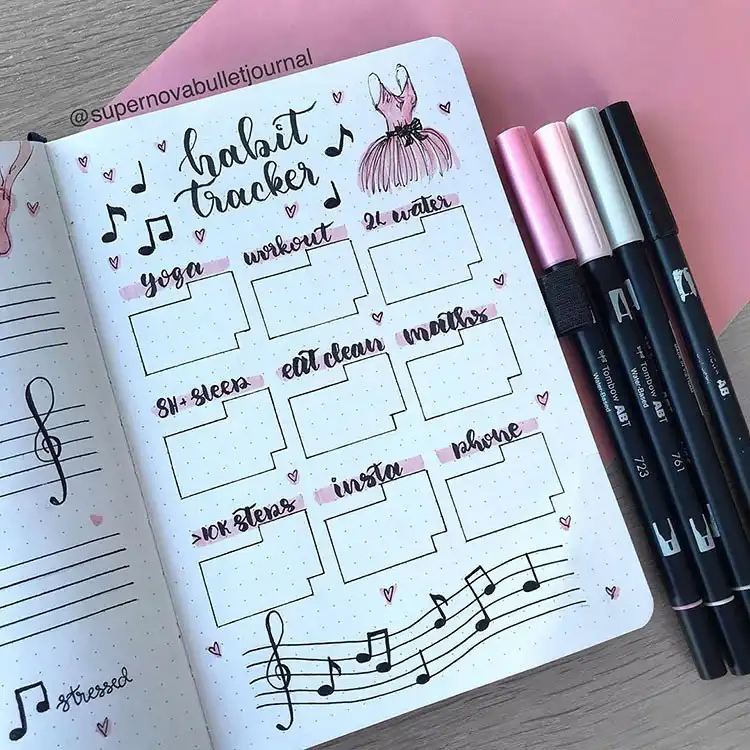 @supernovabulletjournal
habit
tracker
yoga
workout
2L water
8H+ sleep
eat clean
maths
>10K steps
insta
phone
stressed
Tombow ABT
Water-Based
723
Tombow ABT
Water-Based
761